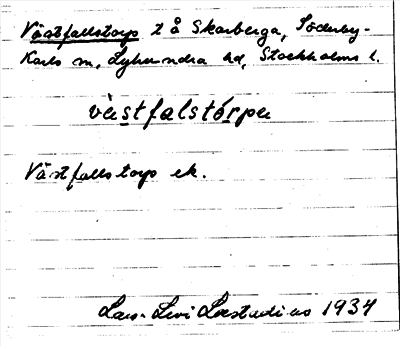 Västfallstorp t å Skarberga, Söderby-
Karls sn, Lyhundra hd, Stockholms l.
vàstfalstórpa
Västfallstorp ek.
Lars-Levi Læstadius 1934